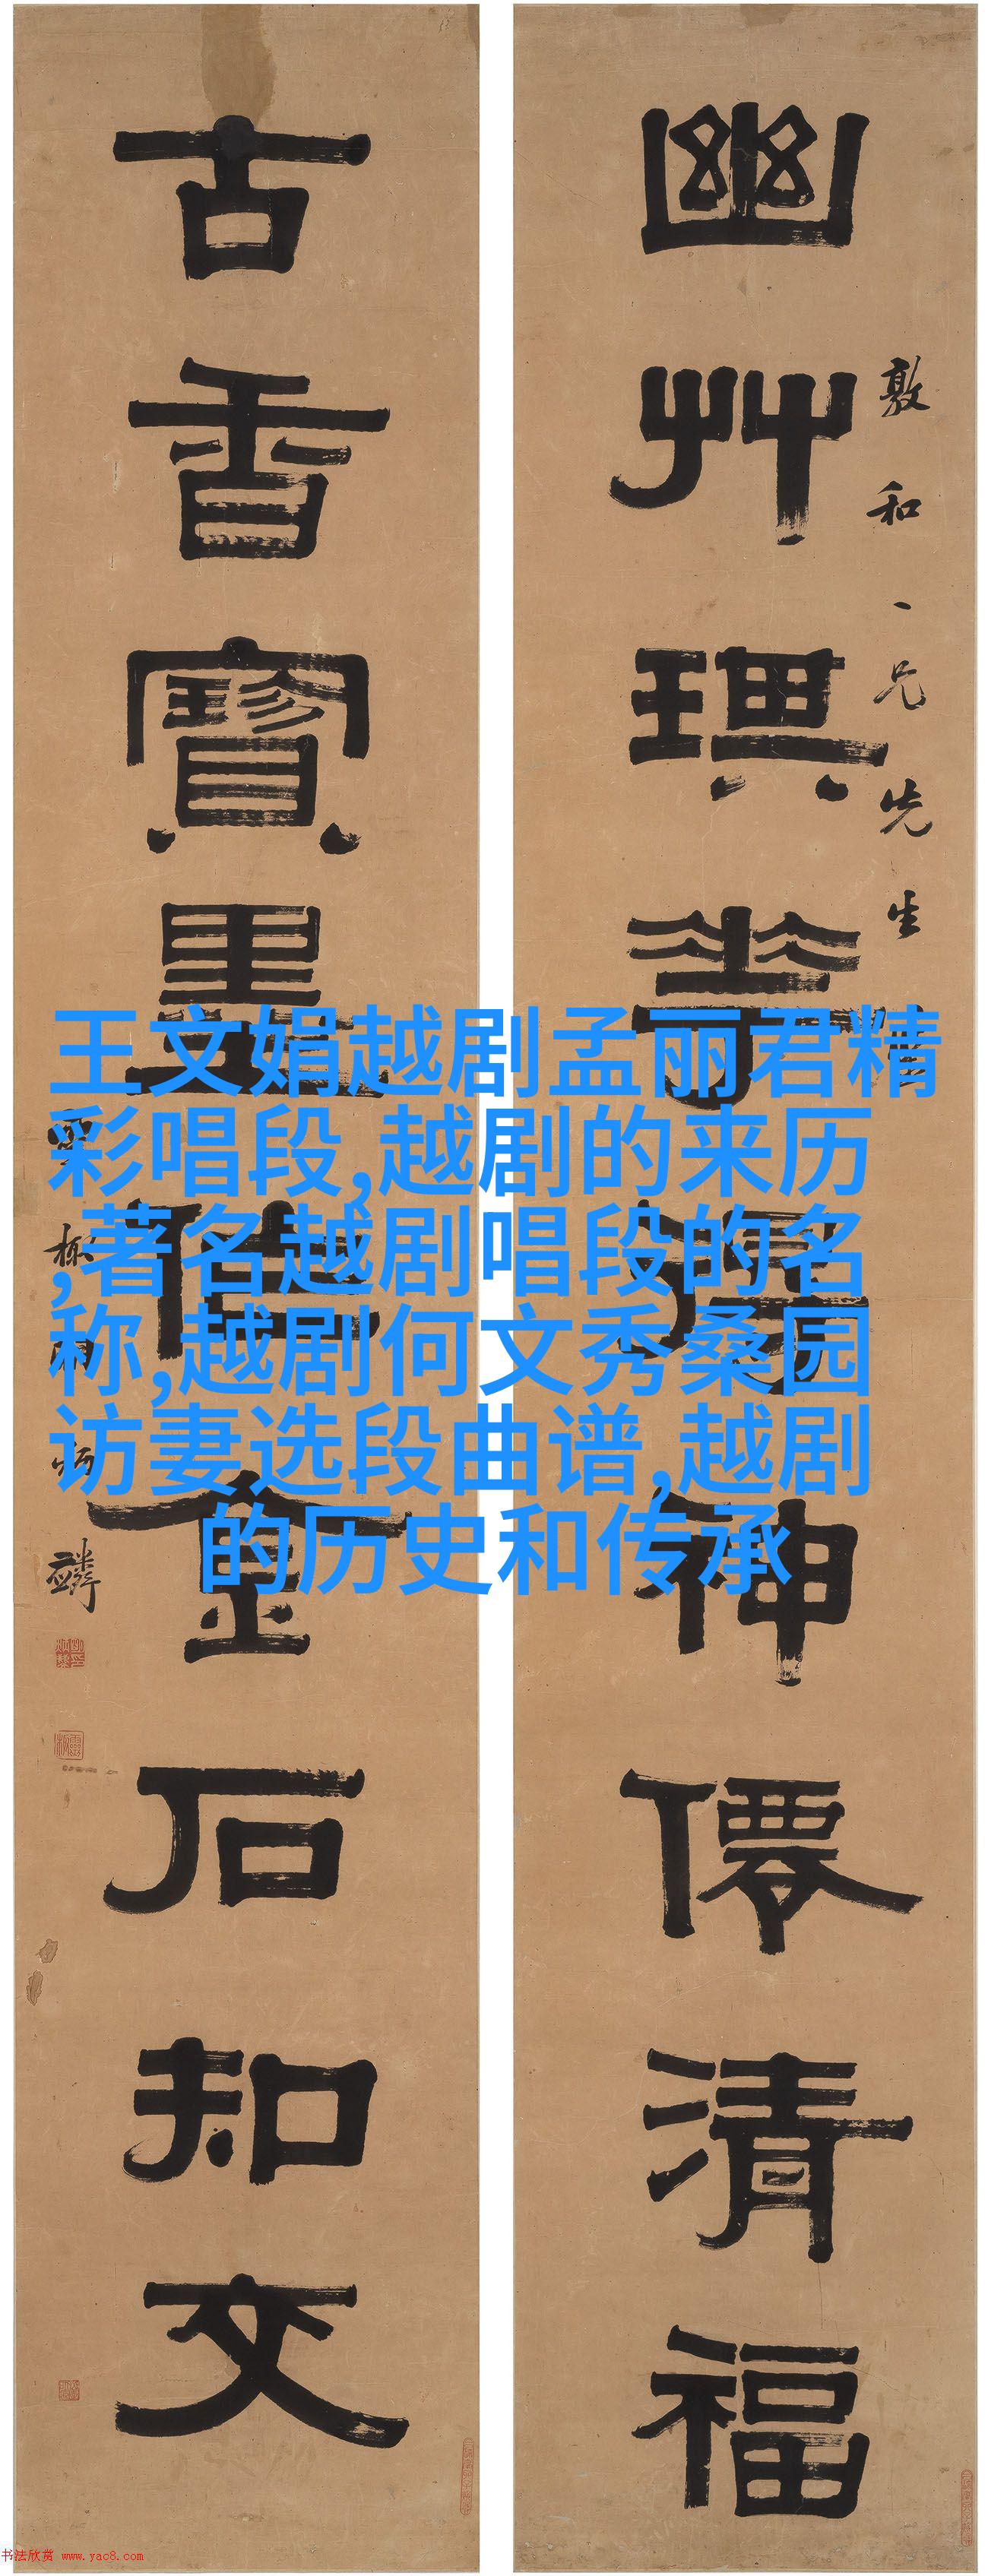 幽艸琪花得神僊清福
敦和一兄先生
古香寶墨借金石知交
王文娟越剧孟丽君精
彩唱段,越剧的来历
,著名越剧唱段的名
称,越剧何文秀桑园
访妻选段曲谱,越剧
的历史和传承
书法欣赏 www.yac8.com